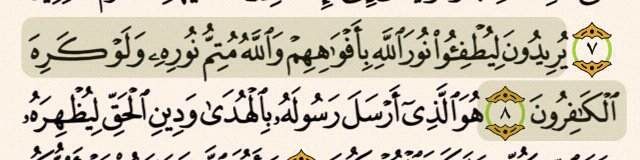 ٧ يُرِيدُونَ لِيُطْفِـُٔوا۟ نُورَ ٱللَّهِ بِأَفْوَٰهِهِمْ وَٱللَّهُ مُتِمُّ نُورِهِۦ وَلَوْ كَرِهَ
ٱلْكَـٰفِرُونَ ٨ هُوَ ٱلَّذِىٓ أَرْسَلَ رَسُولَهُۥ بِٱلْهُدَىٰ وَدِينِ ٱلْحَقِّ لِيُظْهِرَهُۥ